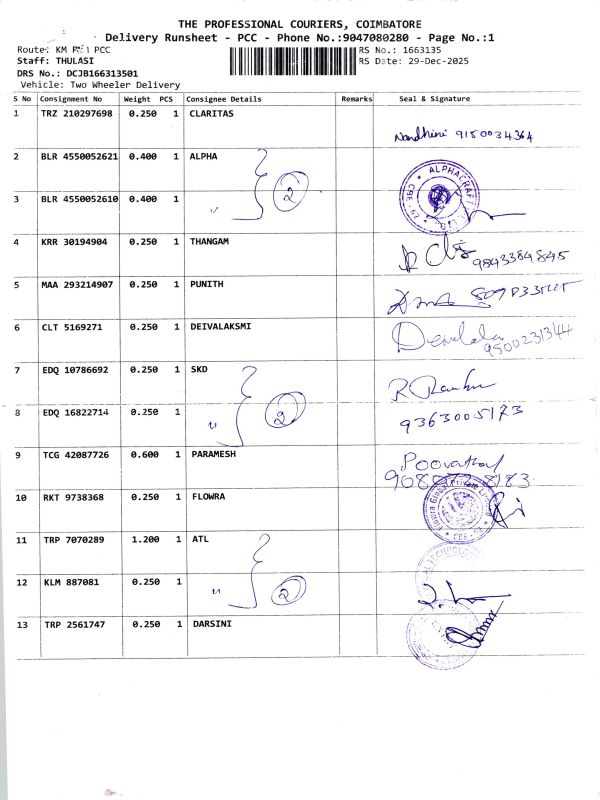 THE PROFESSIONAL COURIERS, COIMBATORE
Delivery Runsheet - PCC - Phone No.:9047080280 - Page No.:1
Route: KM PCC
RS No.: 1663135
Staff: THULASI
RS Date: 29-Dec-2025
DRS No.: DCJB166313501
Vehicle: Two Wheeler Delivery
S No Consignment No Weight PCS Consignee Details Remarks Seal & Signature
1 TRZ 210297698 0.250 1 CLARITAS
Nandhini 9150034364
2 BLR 4550052621 0.400 1 ALPHA
2
3 BLR 4550052610 0.400 1 "
4 KRR 30194904 0.250 1 THANGAM
9843384845
5 MAA 293214907 0.250 1 PUNITH
6 CLT 5169271 0.250 1 DEIVALAKSMI
9500231344
7 EDQ 10786692 0.250 1 SKD
2
8 EDQ 16822714 0.250 1 "
9363005173
9 TCG 42087726 0.600 1 PARAMESH
10 RKT 9738368 0.250 1 FLOWRA
Flowra Global Private Limited
11 TRP 7070289 1.200 1 ATL
2
12 KLM 887081 0.250 1 "
13 TRP 2561747 0.250 1 DARSINI